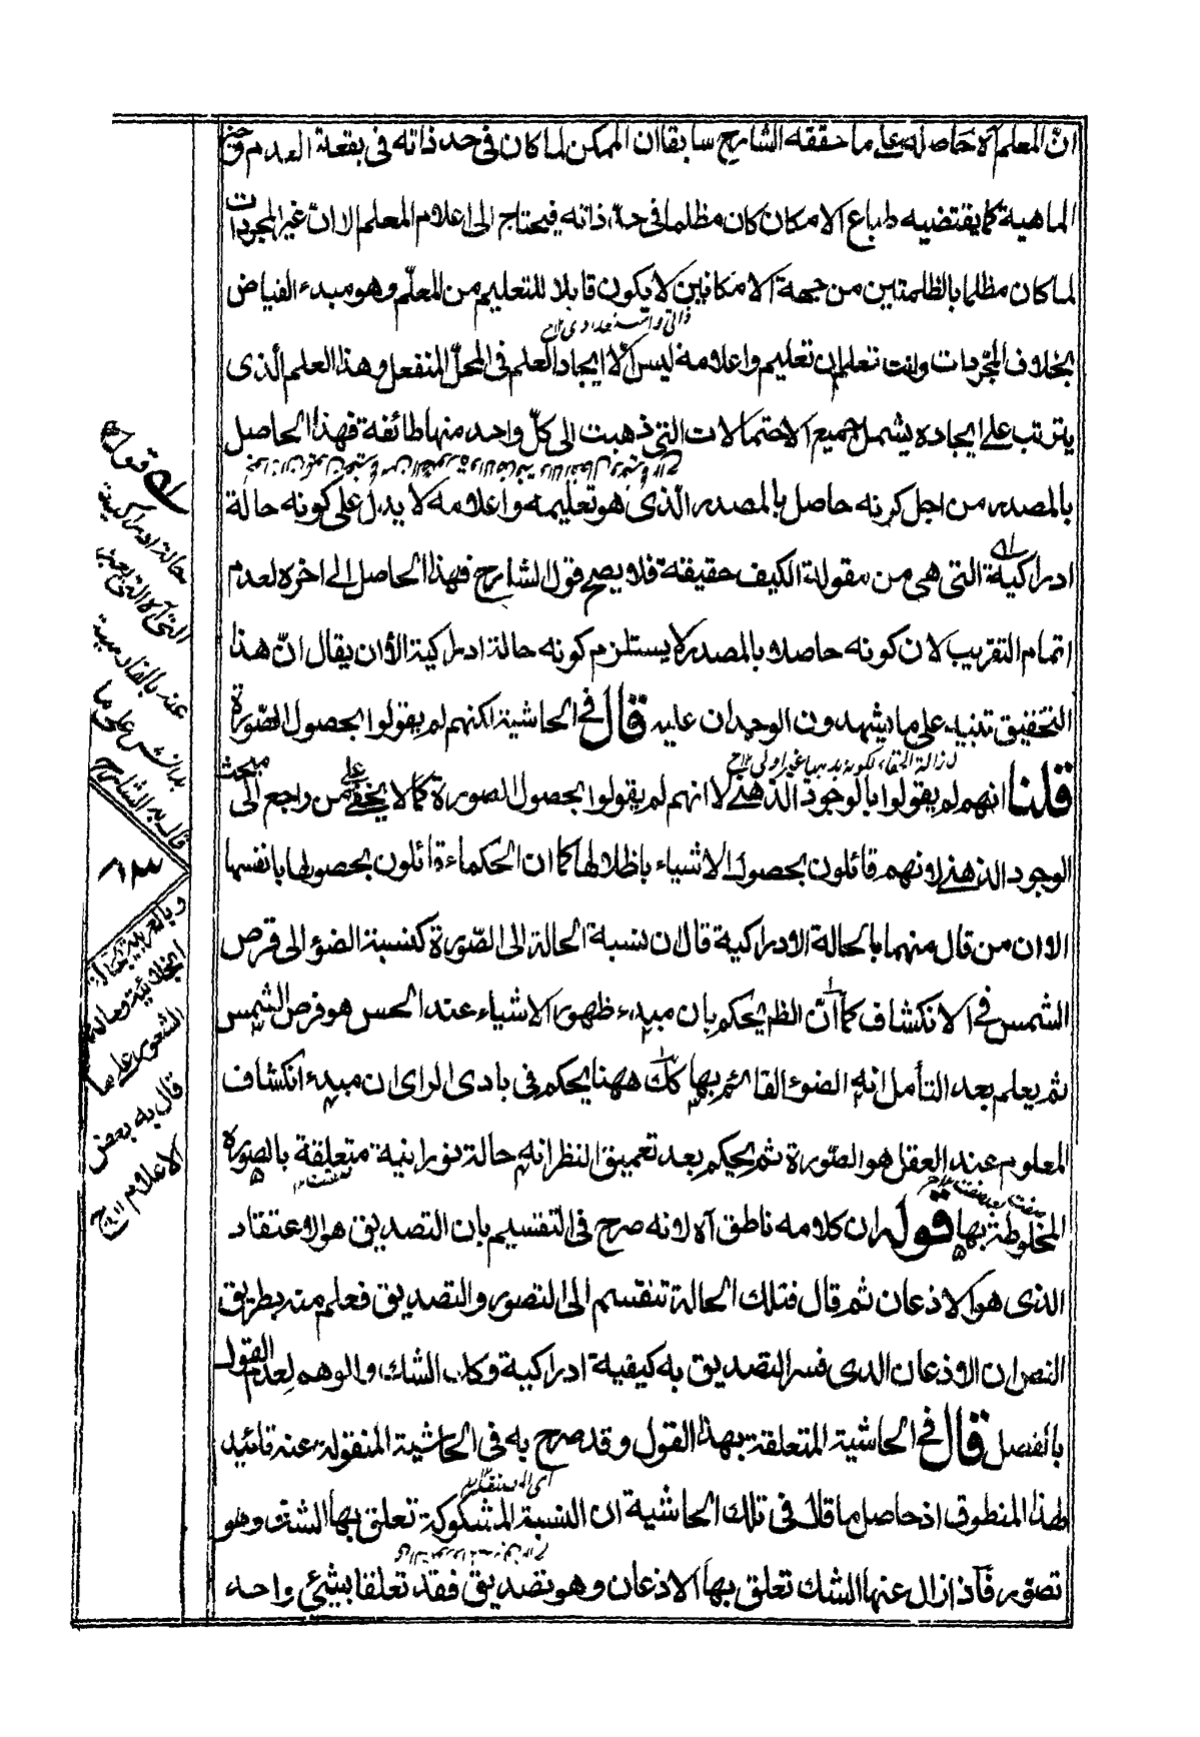 انّ المعلم آه حاصله على ما حققه الشارح سابقا ان الممكن لما كان فى حد ذاته فى بقعة العدم وحيز
الماهية كما يقتضيه طباع الامكان كان مظلما فى حد ذاته فيحتاج الى اعلام المعلم الا انّ غير المجردات
لما كان مظلما بالظلمتين من جهة الامكانين لا يكون قابلا للتعليم من المعلّم وهو مبدء الفياض
ذاتى واستعدادى
بخلاف المجردات وانت تعلم ان تعليم واعلامه ليس الا ايجاد العلم فى المحلّ المنفعل وهذا العلم الّذى
يترتب على ايجاده يشمل جميع الاحتمالات التى ذهبت الى كلّ واحد منها طائفة فهذا الحاصل
بالمصدر من اجل كونه حاصل بالمصدر الّذى هو تعليمه واعلامه لا يدل على كونه حالة
ادراكية التى هى من مقولة الكيف حقيقة فلا يصح قول الشارح فهذا الحاصل الى اخره لعدم
اتمام التقريب لان كونه حاصلا بالمصدر لا يستلزم كونه حالة ادراكية الا ان يقال انّ هذا
التحقيق تنبيه على ما يشهدون الوجدان عليه قال فى الحاشية لكنهم لم يقولوا بحصول الصّورة
لازالة الخفاء لكونه بديهيا غير اولى
قلنا انهم لم يقولوا بالوجود الذهنى لا انهم لم يقولوا بحصول الصورة كما لا يخفى على من راجع الى مبحث
الوجود الذهنى لانهم قائلون بحصول الاشياء باظلالها كما ان الحكماء قائلون بحصولها بانفسها
الا ان من قال منهما بالحالة الادراكية قال ان نسبة الحالة الى الصّورة كنسبة الضوء الى قرص
الشمس فى الانكشاف كما أنّ الظم يحكم بان مبدء ظهور الاشياء عند الحس هو قرص الشمس
ثم يعلم بعد التأمل انه الضوء القائم بها كك ههنا يحكم فى بادى الراى ان مبدء انكشاف
المعلوم عند العقل هو الصّورة ثم يحكم بعد تعميق النظر انه حالة نورانية متعلقة بالصورة
المخلوطة بها قوله ان كلامه ناطق آه لانه صرح فى التقسيم بان التصديق هو الاعتقاد
الذى هو الاذعان ثم قال فتلك الحالة تنقسم الى التصور والتصديق فعلم منه بطريق
النص ان الاذعان الذى فسر التصديق به كيفية ادراكية وكذا الشك والوهم لعدم القول
بالفصل قال فى الحاشية المتعلقة بهذا القول وقد صرح به فى الحاشية المنقولة عنه تائيد
لهذا المنطوق اذ حاصل ما قال فى تلك الحاشية ان النسبة المشكوكة تعلق بها الشك وهو
تصوّر فآذا زال عنها الشك تعلق بها الاذعان وهو تصديق فقد تعلقا بشئ واحد
اى قوله
حالة ادراكية
التى آه التى يعبر
عنه بالفارسية
بدانش على ما
قال به الشارح
٨٣
وبالعربية
الانجلائية
الشعور على ما
قال به بعض
الاعلام